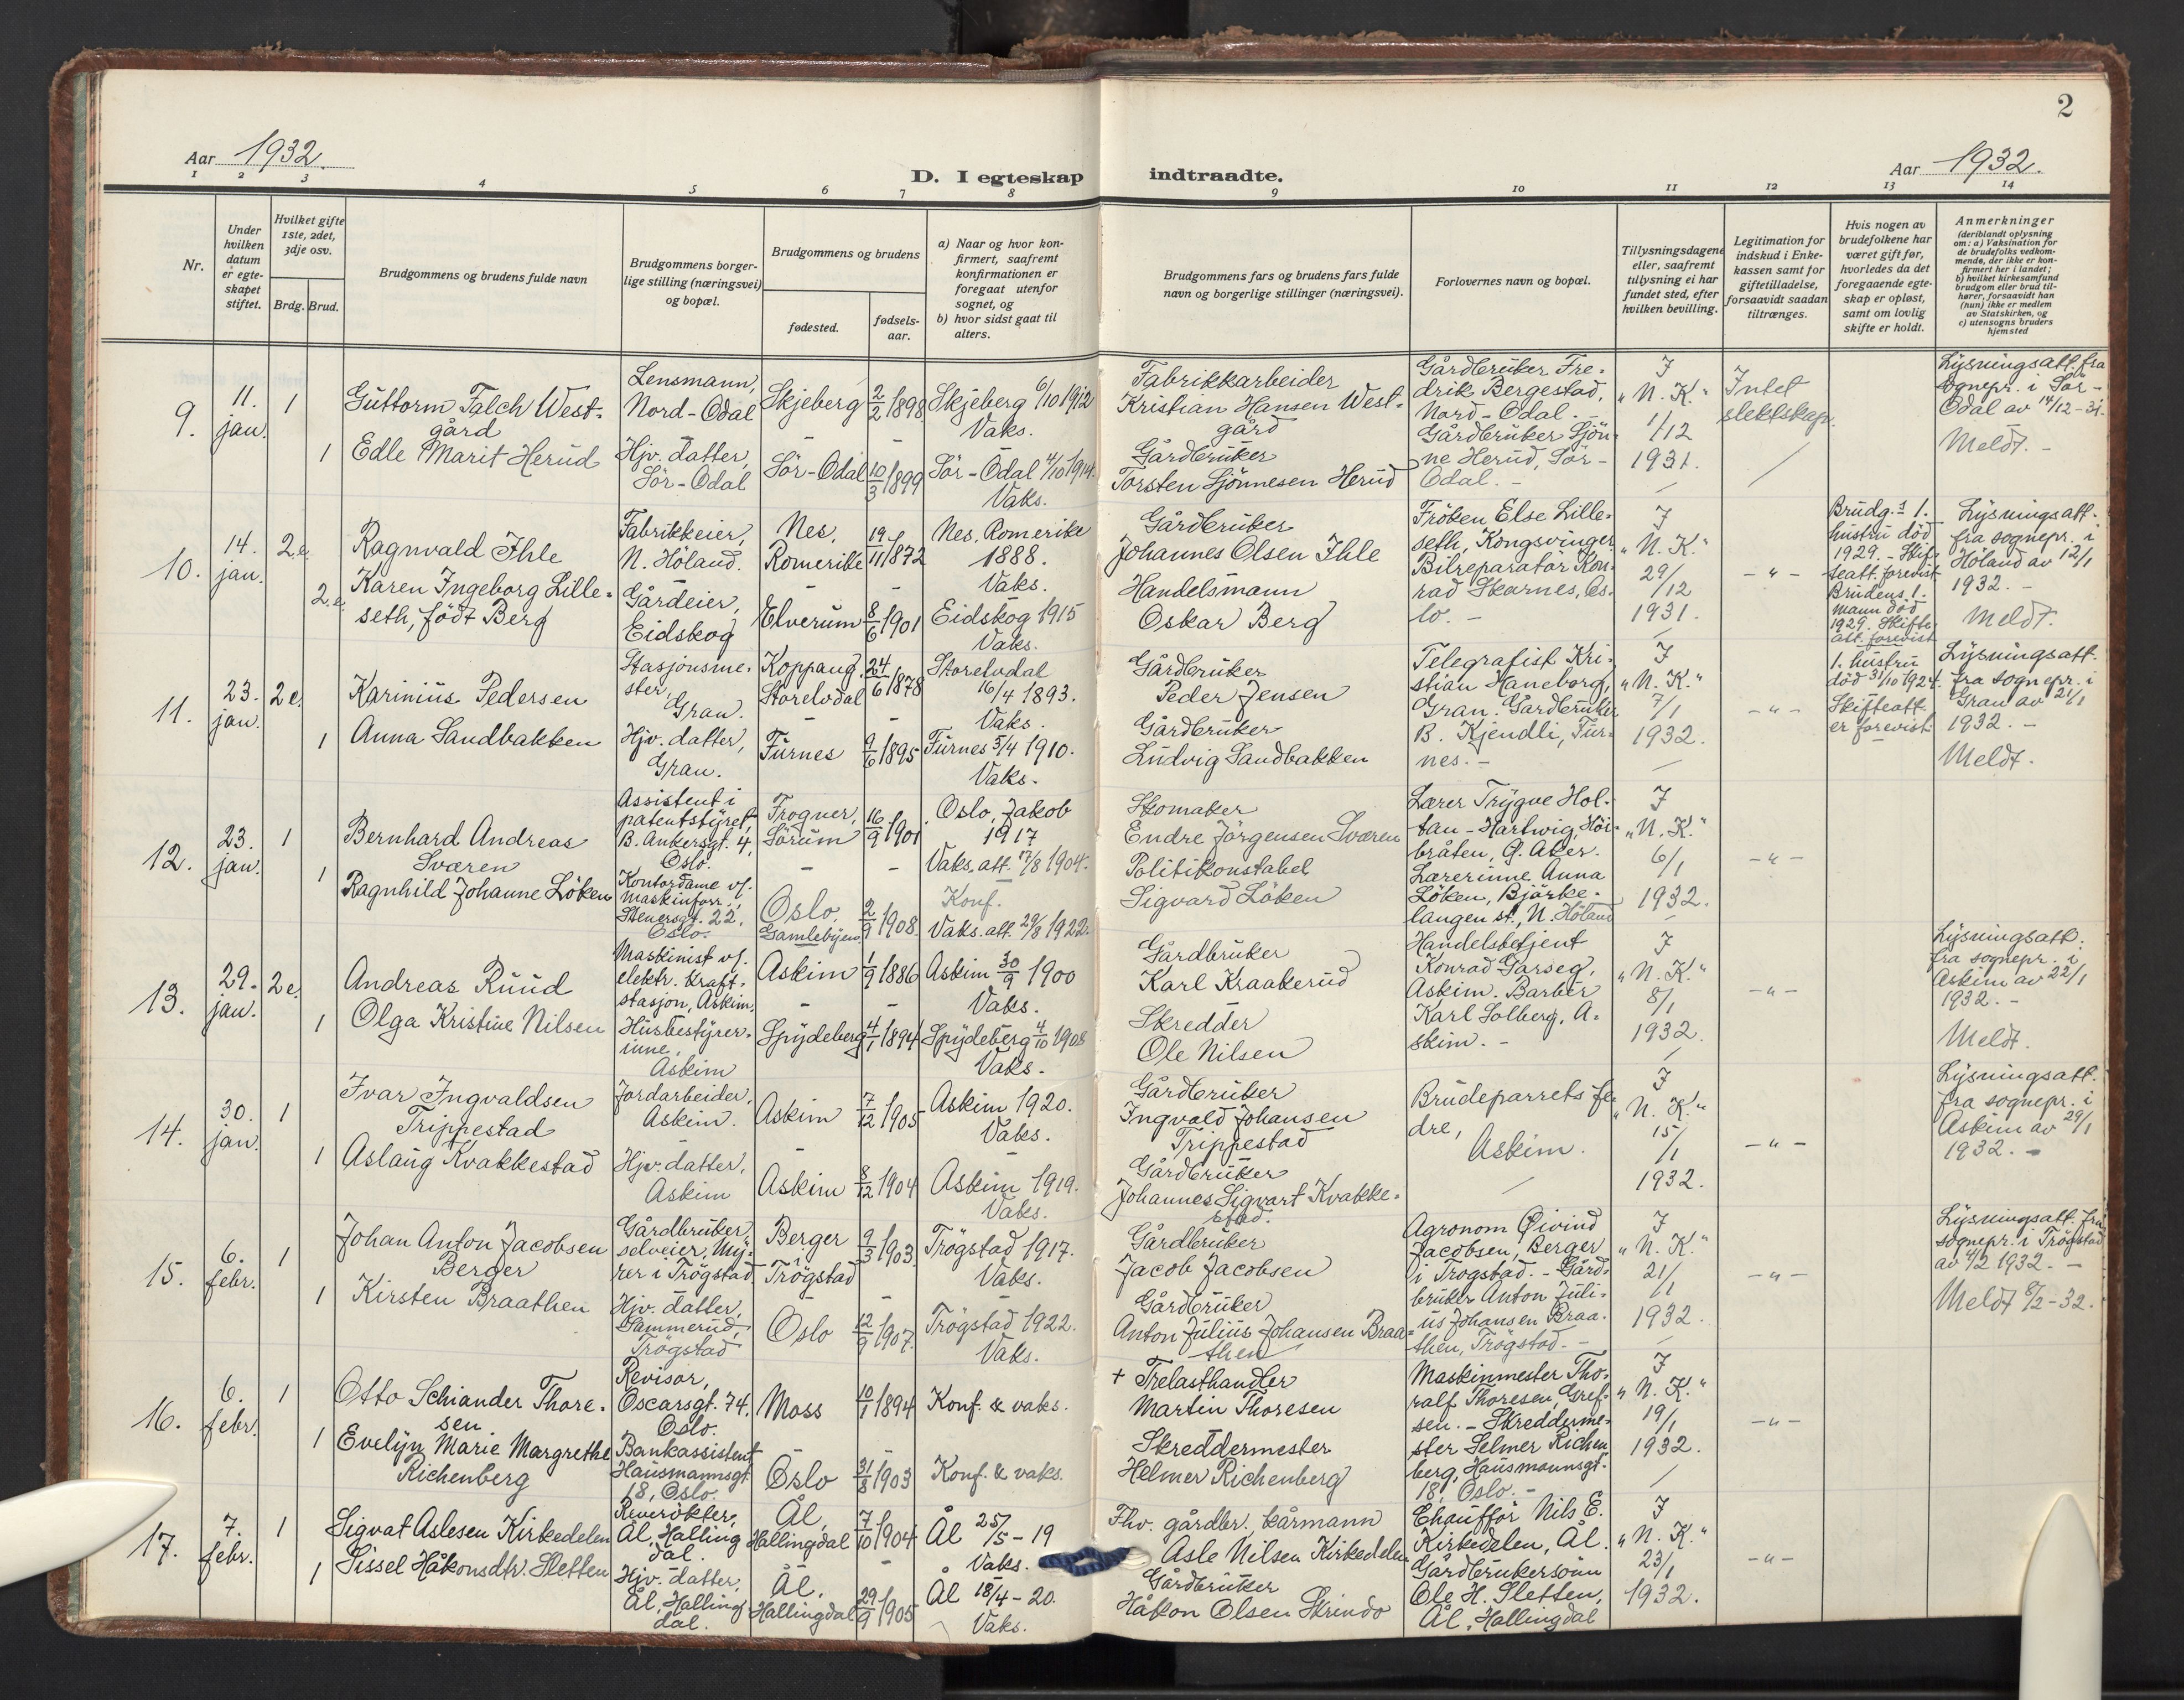 2
Aar 1932.
D. I egteskap indtraadte.
Aar 1932.
1 2 3 4 5 6 7 8 9 10 11 12 13 14
Nr.
Under hvilken datum er egteskapet stiftet.
Hvilket gifte 1ste, 2det, 3dje osv.
Brdg. Brud.
Brudgommens og brudens fulde navn
Brudgommens borgerlige stilling (næringsvei) og bopæl.
Brudgommens og brudens
fødested.
fødselsaar.
a) Naar og hvor konfirmert, saafremt konfirmationen er foregaat utenfor sognet, og
b) hvor sidst gaat til alters.
Brudgommens fars og brudens fars fulde navn og borgerlige stillinger (næringsvei).
Forlovernes navn og bopæl.
Tillysningsdagene eller, saafremt tillysning ei har fundet sted, efter hvilken bevilling.
Legitimation for indskud i Enkekassen samt for giftetilladelse, forsaavidt saadan tiltrænges.
Hvis nogen av brudefolkene har været gift før, hvorledes da det foregaaende egteskap er opløst, samt om lovlig skifte er holdt.
Anmerkninger
(deriblandt oplysning om: a) Vaksination for de brudefolks vedkommende, der ikke er konfirmert her i landet;
b) hvilket kirkesamfund brudgom eller brud tilhører, forsaavidt han (hun) ikke er medlem av Statskirken, og
c) utensogns bruders hjemsted
9. 11. jan. 1
Guttorm Falch Westgård
Lensmann, Nord-Odal
Skjeberg 2/2 1898
Skjeberg 6/10 1912 Vaks.
Fabrikkarbeider Kristian Hansen Westgård
Gårdbruker Fredrik Bergestad, Nord-Odal. -
I "N. K." 1/12 1931.
Intet slektskap.
Lysningsatt. fra sognepr. i Sør-Odal av 14/12-31. Meldt. -
1 Edle Marit Herud
Hjv. datter, Sör-Odal
Sör-Odal 10/3 1899
Sör-Odal 4/10 1914. Vaks.
Gårdbruker Torsten Sjönnesen Herud
Gårdbruker Sjönne Herud, Sør-Odal. -
10. 14. jan. 2.e
Ragnvald Ihle
Fabrikkeier, N. Höland.
Nes, Romerike 19/11 1872
Nes, Romerike 1888. Vaks.
Gårdbruker Johannes Olsen Ihle
Fröken Else Lilleseth, Kongsvinger
I "N. K." 29/12 1931.
- " -
Brudg.s 1. hustru död 1929. - Skifteatt. forevist
Brudens 1. mann död 1929. Skifteatt. forevist
Lysningsatt. fra sognepr. i Höland av 12/1 1932. - Meldt.
2.e Karen Ingeborg Lilleseth, födt Berg
Gårdeier, Eidskog
Elverum 8/6 1901
Eidskog 1915 Vaks.
Handelsmann Oskar Berg
Bilreparatör Konrad Skarnes, Oslo. -
11. 23. jan. 2e.
Karinius Pedersen
Stasjonsmester, Gran.
Koppang, Storelvdal 24/6 1878
Storelvdal 16/4 1893. Vaks.
Gårdbruker Peder Jensen
Telegrafist Kristian Haneborg, Gran.
I "N. K." 7/1 1932.
- " -
1. hustru död 31/10 1924. Skifteatt. er forevist
Lysningsatt. fra sognepr. i Gran av 21/1 1932. - Meldt.
1 Anna Sandbakken
Hjv. datter, Gran.
Furnes 9/6 1895
Furnes 5/4 1910. Vaks.
Gårdbruker Ludvig Sandbakken
Gårdbruker B. Kjendli, Furnes. -
12. 23. jan. 1
Bernhard Andreas Sværen
Assistent i patentstyret, B. Ankersgt. 4, Oslo.
Frogner, Sörum 16/9 1901
Oslo, Jakob 1917 Vaks. att. 17/8 1904.
Skomaker Endre Jörgensen Sværen
Lærer Trygve Holtan-Hartwig, Höibråten, Ø. Aker.
I "N. K." 6/1 1932.
- " -
1 Ragnhild Johanne Löken
Kontordame v/. maskinforr., Stenersgt. 22, Oslo.
Oslo, Gamlebyen 2/9 1908.
Konf. Vaks. att. 29/8 1922.
Politikonstabel Sigvard Löken
Lærerinne Anna Löken, Bjørkelangen st., N. Höland
13. 29. jan. 2e.
Andreas Ruud
Maskinist v/. elektr. kraftstasjon, Askim,
Askim 1/9 1886
Askim 30/9 1900 Vaks.
Gårdbruker Karl Kraakerud
Handelsbetjent Konrad Garseg, Askim.
I "N. K." 8/1 1932.
- " -
Lysningsatt. fra sognepr. i Askim av 22/1 1932. - Meldt.
1 Olga Kristine Nilsen
Husbestyrerinne, Askim
Spydeberg 4/1 1894
Spydeberg 4/10 1908 Vaks.
Skredder Ole Nilsen
Barber Karl Solberg, Askim. -
14. 30. jan. 1
Ivar Ingvaldsen Trippestad
Jordarbeider, Askim.
Askim 7/12 1905
Askim 1920. Vaks.
Gårdbruker Ingvald Johansen Trippestad
Brudeparrets fedre, Askim.
I "N. K." 15/1 1932.
- " -
Lysningsatt. fra sognepr. i Askim av 29/1 1932. -
1 Aslaug Kvakkestad
Hjv. datter, Askim
Askim 8/12 1904
Askim 1919. Vaks.
Gårdbruker Johannes Sigvart Kvakkestad.
15. 6. febr. 1
Johan Anton Jacobsen Berger
Gårdbruker, selveier, Myrer i Trögstad
Berger, Trögstad 9/3 1903
Trögstad 1917. Vaks.
Gårdbruker Jacob Jacobsen
Agronom Øivind Jacobsen, Berger i Trogstad. -
I "N. K." 21/1 1932.
- " -
Lysningsatt. fra sognepr. i Trögstad av 4/2 1932. - Meldt 8/2-32.
1 Kirsten Braathen
Hjv. datter, Sammerud, Trögstad
Oslo 12/9 1907.
Trögstad 1922. Vaks.
Gårdbruker Anton Julius Johansen Braathen
Gårdbruker Anton Julius Johansen Braathen, Trögstad. -
16. 6. febr. 1
Otto Schiander Thoresen
Revisor, Oscarsgt. 74, Oslo.
Moss 10/1 1894
Konf. & vaks.
+ Trelasthandler Martin Thoresen
Maskinmester Thoralf Thoresen, Grefsen. -
I "N. K." 19/1 1932.
- " -
1 Evelyn Marie Margrethe Richenberg
Bankassistent Hausmannsgt. 18, Oslo.
Oslo 31/8 1903
Konf. & vaks.
Skreddermester Helmer Richenberg
Skreddermester Selmer Richenberg, Hausmannsgt. 18, Oslo. -
17. 7. febr. 1
Sigvat Aslesen Kirkedelen
Reverökter, Ål, Hallingdal.
Ål, Hallingdal 7/10 1904
Ål 25/5-19 Vaks.
Fhv. gårdbr., kårmann Asle Nilsen Kirkedelen
Chauffør Nils E. Kirkedelen, Ål.
I "N. K." 23/1 1932.
- " -
1 Sissel Håkonsdtr. Sletten
Hjv. datter, Ål, Hallingdal.
Ål, Hallingdal 29/9 1905
Ål 18/4-20. Vaks.
Gårdbruker Håkon Olsen Skrindo
Gårdbrukersönn Ole H. Sletten, Ål, Hallingdal